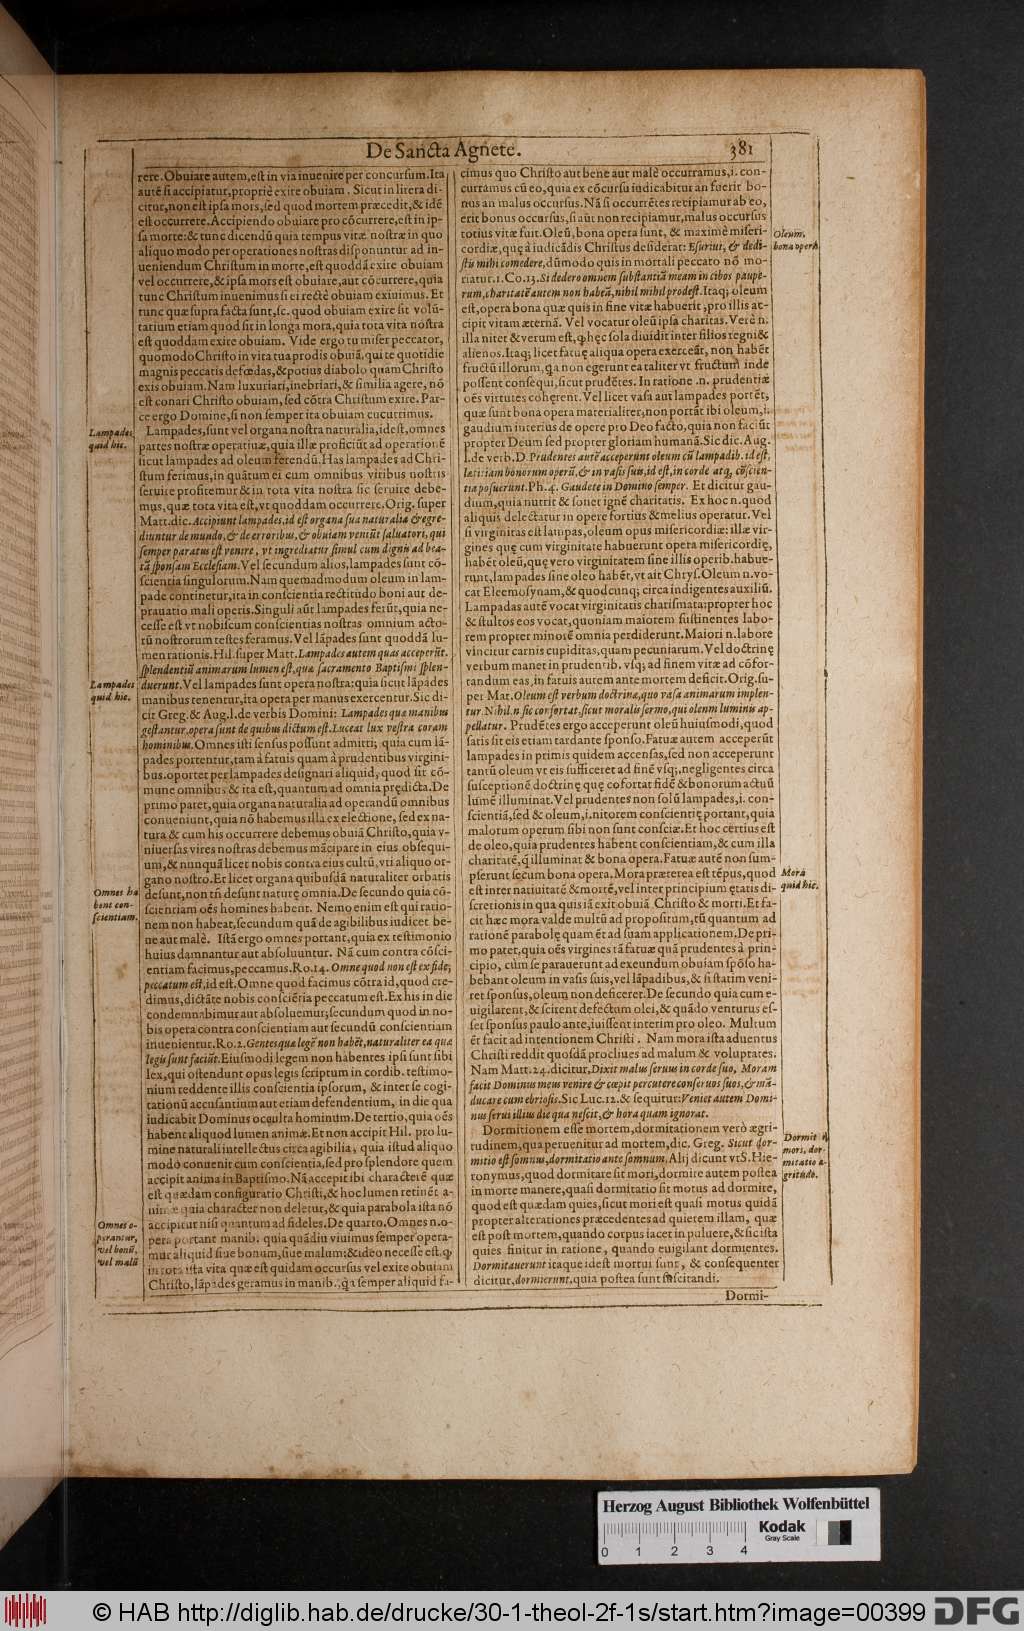 De Sancta Agnete. 381
rere. Obuiare autem, est in via inuenire per concursum. Ita
autē si accipiatur, propriè exire obuiam. Sicut in litera di-
citur, non est ipsa mors, sed quod mortem præcedit, & idē
est occurrere. Accipiendo obuiare pro cōcurrere, est in ip-
sa morte: & tunc dicendū quia tempus vitæ nostræ in quo
aliquo modo per operationes nostras disponuntur ad in-
ueniendum Christum in morte, est quoddā exire obuiam
vel occurrere, & ipsa mors est obuiare, aut cōcurrere, quia
tunc Christum inuenimus si ei rectè obuiam exiuimus. Et
tunc quæ supra facta sunt, sc. quod obuiam exire sit volū-
tarium etiam quod sit in longa mora, quia tota vita nostra
est quoddam exire obuiam. Vide ergo tu miser peccator,
quomodo Christo in vita tua prodis obuiā, qui te quotidie
magnis peccatis defœdas, & potius diabolo quam Christo
exis obuiam. Nam luxuriari, inebriari, & similia agere, nō
est conari Christo obuiam, sed cōtra Christum exire. Par-
ce ergo Domine, si non semper ita obuiam cucurrimus.
Lampades, sunt vel organa nostra naturalia, idest, omnes
partes nostræ operatiuæ, quia illæ proficiūt ad operationē
sicut lampades ad oleum ferendū. Has lampades ad Chri-
stum ferimus, in quātum ei cum omnibus viribus nostris
seruire profitemur & in tota vita nostra sic seruire debe-
mus, quæ tota vita est, vt quoddam occurrere. Orig. super
Matt. dic. Accipiunt lampades, id est organa sua naturalia & egre-
diuntur de mundo, & de erroribus, & obuiam veniūt saluatori, qui
semper paratus est venire, vt ingrediatur simul cum dignis ad bea-
tā sponsam Ecclesiam. Vel secundum alios, lampades sunt cō-
scientia singulorum. Nam quemadmodum oleum in lam-
pade continetur, ita in conscientia rectitudo boni aut de-
prauatio mali operis. Singuli aūt lampades ferūt, quia ne-
cesse est vt nobiscum conscientias nostras omnium acto-
rū nostrorum testes feramus. Vel lāpades sunt quoddā lu-
men rationis. Hil. super Matt. Lampades autem quas acceperūt,
splendentiū animarum lumen est, quæ sacramento Baptismi splen-
duerunt. Vel lampades sunt opera nostra: quia sicut lāpades
manibus tenentur, ita opera per manus exercentur. Sic di-
cit Greg. & Aug. l. de verbis Domini: Lampades quæ manibus
gestantur, opera sunt de quibus dictum est. Luceat lux vestra coram
hominibus. Omnes isti sensus possunt admitti, quia cum lā-
pades portentur, tam à fatuis quam à prudentibus virgini-
bus. oportet per lampades designari aliquid, quod sit cō-
mune omnibus & ita est, quantum ad omnia prędicta. De
primo patet, quia organa naturalia ad operandū omnibus
conueniunt, quia nō habemus illa ex electione, sed ex na-
tura & cum his occurrere debemus obuiā Christo, quia v-
niuersas vires nostras debemus mācipare in eius obsequi-
um, & nunquā licet nobis contra eius cultū, vti aliquo or-
gano nostro. Et licet organa quibusdā naturaliter orbatis
desunt, non tñ desunt naturę omnia. De secundo quia cō-
scientiam oēs homines habent. Nemo enim est qui ratio-
nem non habeat, secundum quā de agibilibus iudicet be-
ne aut malè. Istā ergo omnes portant, quia ex testimonio
huius damnantur aut absoluuntur. Nā cum contra cōsci-
entiam facimus, peccamus. Ro. 14. Omne quod non est ex fide,
peccatum est, id est. Omne quod facimus cōtra id, quod cre-
dimus, dictāte nobis consciēria peccatum est. Ex his in die
condemnabimur aut absoluemur, secundum quod in no-
bis opera contra conscientiam aut secundū conscientiam
inuenientur. Ro. 2. Gentes quæ legē non habēt, naturaliter ea quæ
legis sunt faciūt. Eiusmodi legem non habentes ipsi sunt sibi
lex, qui ostendunt opus legis scriptum in cordib. testimo-
nium reddente illis conscientia ipsorum, & inter se cogi-
tationū accusantium aut etiam defendentium, in die qua
iudicabit Dominus occulta hominum. De tertio, quia oēs
habent aliquod lumen animæ. Et non accipit Hil. pro lu-
mine naturali intellectus circa agibilia, quia istud aliquo
modo conuenit cum conscientia, sed pro splendore quem
accipit anima in Baptismo. Nā accepit ibi characterē quæ
est quædam configuratio Christi, & hoc lumen retinēt a-
nimæ quia character non deletur, & quia parabola ista nō
accipitur nisi quantum ad fideles. De quarto. Omnes n. o-
pera portant manib. quia quādiu viuimus semper opera-
mur aliquid siue bonum, siue malum: & ideo necesse est. ꝙ
in tota ista vita quæ est quidam occursus vel exire obuiam
Christo, lāpades geramus in manib. ꝗa semper aliquid fa-
Lampades
quid hic.
Lampades
quid hic.
Omnes ha
bent con-
scientiam.
Omnes o-
perantur,
vel bonū,
vel malū
cimus quo Christo aut bene aut malè occurramus, i. con-
curramus cū eo, quia ex cōcursu iudicabitur an fuerit bo-
nus an malus occursus. Nā si occurrētes recipiamur ab eo,
erit bonus occursus, si aūt non recipiamur, malus occursus
totius vitæ fuit. Oleū, bona opera sunt, & maximè miseri-
cordiæ, quę à iudicādis Christus desiderat: Esuriui, & dedi-
stis mihi comedere, dūmodo quis in mortali peccato nō mo-
riatur. 1. Co. 13. Si dedero omnem substantiā meam in cibos paupe-
rum, charitatē autem non habeā, nihil mihi prodest. Itaq; oleum
est, opera bona quæ quis in fine vitæ habuerit, pro illis ac-
cipit vitam æternā. Vel vocatur oleū ipsa charitas. Verè n.
illa nitet & verum est, ꝙ hęc sola diuidit inter filios regni &
alienos. Itaq; licet fatuę aliqua opera exerceāt, non habēt
fructū illorum, ꝗa non egerunt ea taliter vt fructum inde
possent consequi, sicut prudētes. In ratione .n. prudentiæ
oēs virtutes cohęrent. Vel licet vasa aut lampades portēt,
quæ sunt bona opera materialiter, non portāt ibi oleum, i.
gaudium interius de opere pro Deo facto, quia non faciūt
propter Deum sed propter gloriam humanā. Sic dic. Aug.
l. de verb. D. Prudentes autē acceperunt oleum cū lampadib. id est,
lætitiam bonorum operū, & in vasis suis, id est, in corde atq; cōscien-
tia posuerunt. Ph. 4. Gaudete in Domino semper. Et dicitur gau-
dium, quia nutrit & fouet ignē charitatis. Ex hoc n. quod
aliquis delectatur in opere fortius & melius operatur. Vel
si virginitas est lampas, oleum opus misericordiæ: illæ vir-
gines quę cum virginitate habuerunt opera misericordię,
habēt oleū, quę vero virginitatem sine illis operib. habue-
runt, lampades sine oleo habēt, vt ait Chrys. Oleum n. vo-
cat Eleemosynam, & quodcunq; circa indigentes auxiliū.
Lampadas autē vocat virginitatis charismata: propter hoc
& stultos eos vocat, quoniam maiorem sustinentes labo-
rem propter minorē omnia perdiderunt. Maiori n. labore
vincitur carnis cupiditas, quam pecuniarum. Vel doctrinę
verbum manet in prudentib. vsq; ad finem vitæ ad cōfor-
tandum eas, in fatuis autem ante mortem deficit. Orig. su-
per Mat. Oleum est verbum doctrinæ, quo vasa animarum implen-
tur. Nihil. n sic confortat, sicut moralis sermo, qui oleum luminis ap-
pellatur. Prudētes ergo acceperunt oleū huiusmodi, quod
satis sit eis etiam tardante sponso. Fatuæ autem acceperūt
lampades in primis quidem accensas, sed non acceperunt
tantū oleum vt eis sufficeret ad finē vsq;, negligentes circa
susceptionē doctrinę quę cōfortat fidē & bonorum actuū
lumē illuminat. Vel prudentes non solū lampades, i. con-
scientiā, sed & oleum, i. nitorem conscientię portant, quia
malorum operum sibi non sunt consciæ. Et hoc certius est
de oleo, quia prudentes habent conscientiam, & cum illa
charitatē, ꝗ̄ illuminat & bona opera. Fatuæ autē non sum-
pserunt secum bona opera. Mora præterea est tēpus, quod
est inter natiuitatē & mortē, vel inter principium ętatis di-
scretionis in qua quis iā exit obuiā Christo & morti. Et fa-
cit hæc mora valde multū ad propositum, tū quantum ad
rationē parabolę quam ēt ad suam applicationem. De pri-
mo patet, quia oēs virgines tā fatuæ quā prudentes à prin-
cipio, cùm se parauerunt ad exeundum obuiam spōso ha-
bebant oleum in vasis suis, vel lāpadibus, & si statim veni-
ret sponsus, oleum non deficeret. De secundo quia cum e-
uigilarent, & scirent defectum olei, & quādo venturus es-
set sponsus paulo ante, iuissent interim pro oleo. Multum
ēt facit ad intentionem Christi. Nam mora ista aduentus
Christi reddit quosdā procliues ad malum & voluptates.
Nam Matt. 24. dicitur, Dixit malus seruus in corde suo, Moram
facit Dominus meus venire & cœpit percutere conseruos suos, & mā-
ducare cum ebriosis. Sic Luc. 12. & sequitur: Veniet autem Domi-
nus serui illius die qua nescit, & hora quam ignorat.
Dormitionem esse mortem, dormitationem verò ægri-
tudinem, qua peruenitur ad mortem, dic. Greg. Sicut dor-
mitio est somnus, dormitatio ante somnum. Alij dicunt vt S. Hie-
ronymus, quod dormitare sit mori, dormire autem postea
in morte manere, quasi dormitatio sit motus ad dormire,
quod est quædam quies, sicut mori est quasi motus quidā
propter alterationes præcedentes ad quietem illam, quæ
est post mortem, quando corpus iacet in puluere, & sic ista
quies finitur in ratione, quando euigilant dormientes.
Dormitauerunt itaque idest mortui sunt, & consequenter
dicitur, dormierunt, quia postea sunt suscitandi.
Dormi-
Oleum,
bona opera
Mora
quid hic.
Dormit
mori, dor-
mitatio æ-
gritudo.
Herzog August Bibliothek Wolfenbüttel
0 1 2 3 4
Kodak
Gray Scale
© HAB http://diglib.hab.de/drucke/30-1-theol-2f-1s/start.htm?image=00399
DFG